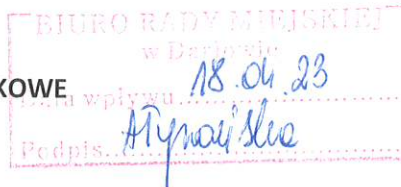 BIURO RADY MIEJSKIEJ
w Darłowie
KOWE
Data wpływu 18.04.23
Podpis